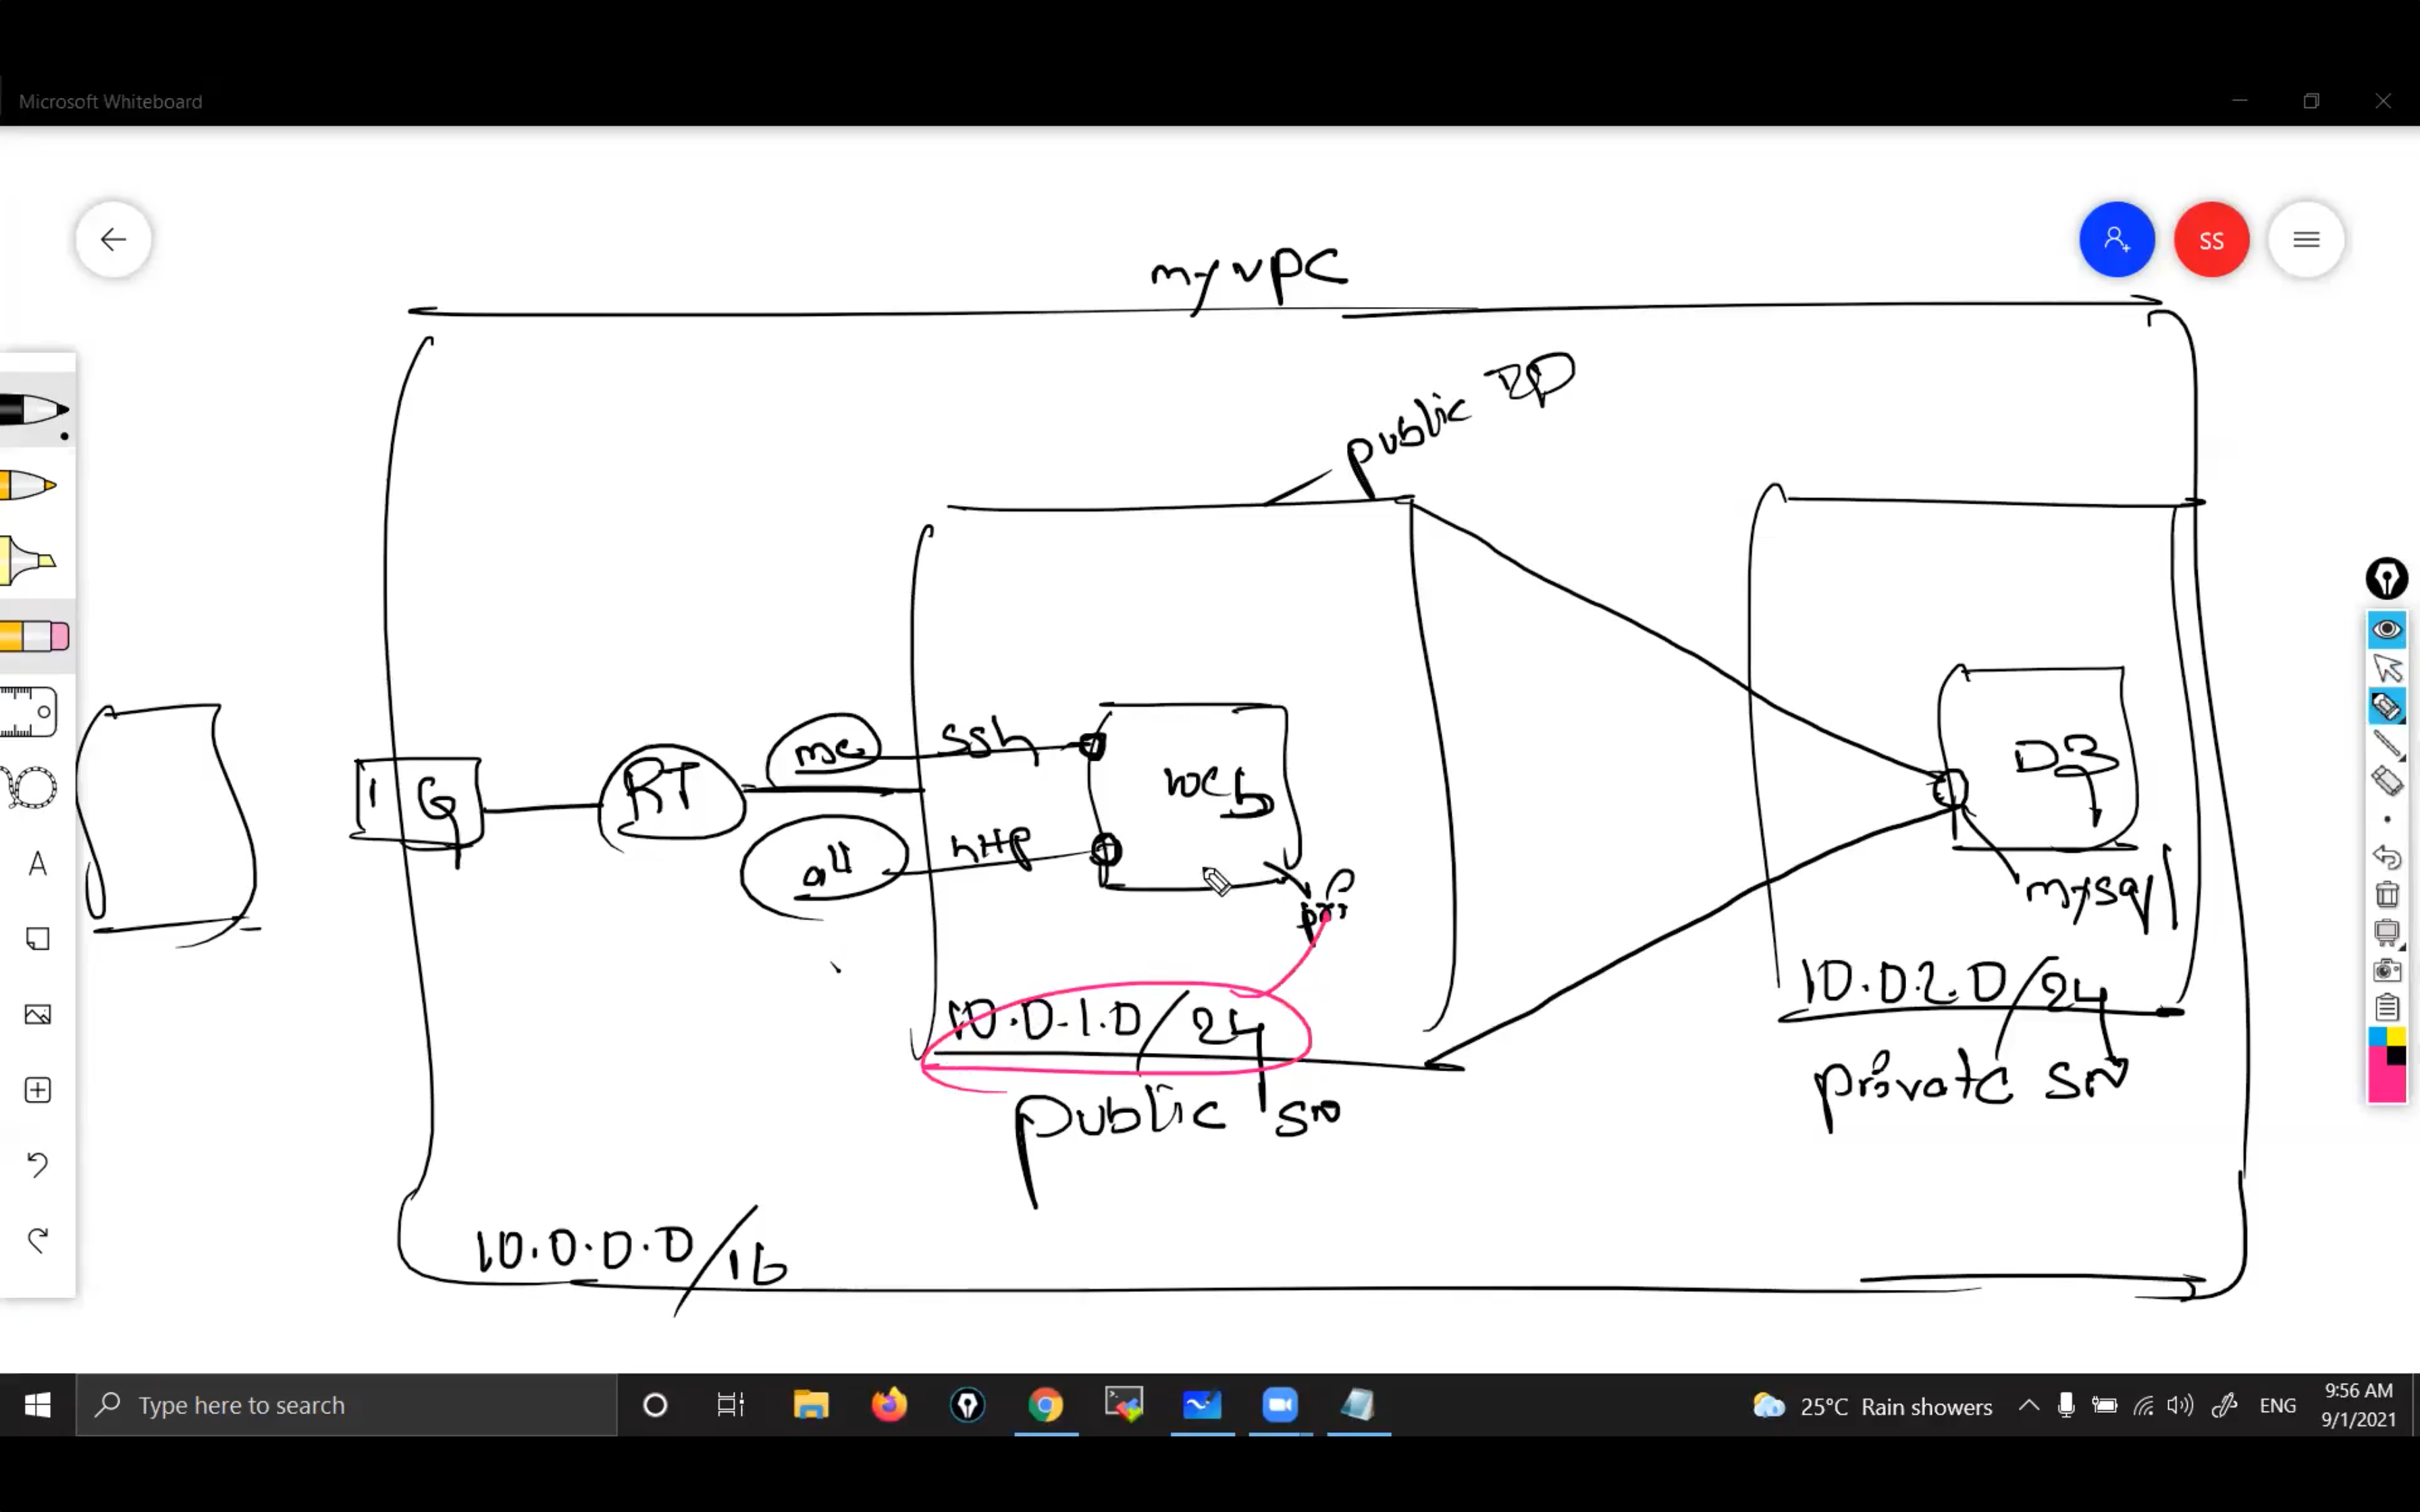 Microsoft Whiteboard
SS
my vpc
public IP
me
ssh
web
IG
RT
all
http
pri
DB
mysql
10.0.1.0/24
public sn
10.0.2.0/24
private SN
10.0.0.0/16
A
Type here to search
25°C Rain showers
ENG
9:56 AM
9/1/2021